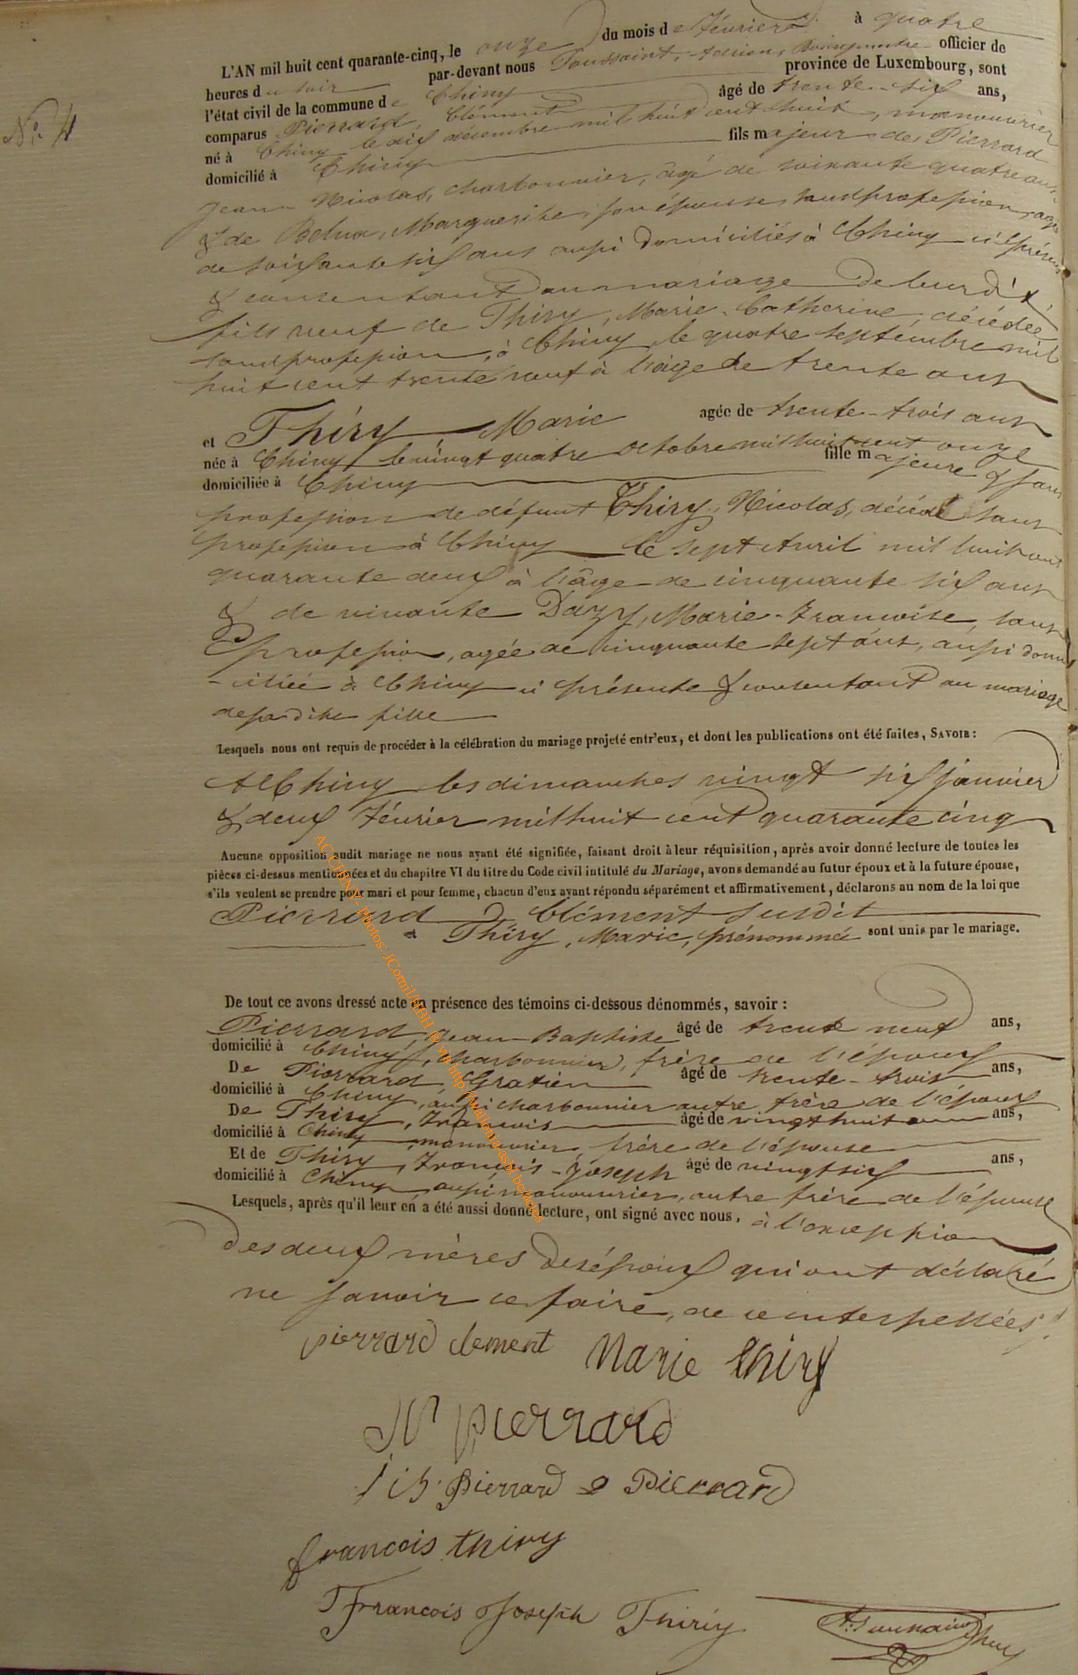 N° 4
L'AN mil huit cent quarante-cinq, le onze du mois de Février à quatre
heures du soir par-devant nous Toussaint, Adrien, officier de
l'état civil de la commune de Chiny province de Luxembourg, sont
comparus Pierrard, Clément âgé de trente-six ans,
né à Chiny le dix décembre mil huit cent huit, manouvrier
domicilié à Chiny fils majeur de Pierrard
Jean Nicolas, charbonnier, âgé de soixante quatre ans,
& de Marguerite, son épouse, sans profession, agée
de soixante six ans aussi domiciliés à Chiny ci présens
& consentant au mariage de leur dit
fils veuf de Thiry, Marie-Catherine, décédée
sans profession, à Chiny le quatre septembre mil
huit cent trente neuf à l'âge de trente ans
et Thiry Marie agée de trente-trois ans
née à Chiny le vingt quatre octobre mil huit cent onze
domiciliée à Chiny fille majeure & sans
profession de défunt Thiry, Nicolas, décédé sans
profession à Chiny le sept Avril mil huit cent
quarante deux à l'âge de cinquante six ans
& de vivante Dazy, Marie-Francoise, sans
profession, agée de cinquante sept ans, aussi domi
-ciliée à Chiny ci présente & consentant au mariage
de sa dite fille
Lesquels nous ont requis de procéder à la célébration du mariage projeté entr'eux, et dont les publications ont été faites, SAVOIR :
A Chiny les dimanches vingt six janvier
& deux Février mil huit cent quarante cinq
Aucune opposition audit mariage ne nous ayant été signifiée, faisant droit à leur réquisition, après avoir donné lecture de toutes les
pièces ci-dessus mentionnées et du chapitre VI du titre du Code civil intitulé du Mariage, avons demandé au futur époux et à la future épouse,
s'ils veulent se prendre pour mari et pour femme, chacun d'eux ayant répondu séparément et affirmativement, déclarons au nom de la loi que
Pierrard Clément susdit
& Thiry, Marie, prénommée sont unis par le mariage.
De tout ce avons dressé acte en présence des témoins ci-dessous dénommés, savoir :
Pierrard, Jean-Baptiste âgé de trente neuf ans,
domicilié à Chiny, charbonnier, frère de l'époux
De Pierrard, Gratien âgé de trente-trois ans,
domicilié à Chiny, aussi charbonnier autre frère de l'époux
De Thiry, François âgé de vingt huit ans,
domicilié à Chiny manouvrier, frère de l'épouse
Et de Thiry, François-Joseph âgé de vingt six ans,
domicilié à Chiny aussi manouvrier, autre frère de l'épouse
Lesquels, après qu'il leur en a été aussi donné lecture, ont signé avec nous, à l'exception
des deux mères des époux qui ont déclaré
ne savoir ce faire, de ce interpellées.
pierrard clement Marie thiry
pierrard
Pierrard Pierrard
francois thiry
Francois Joseph Thiriy